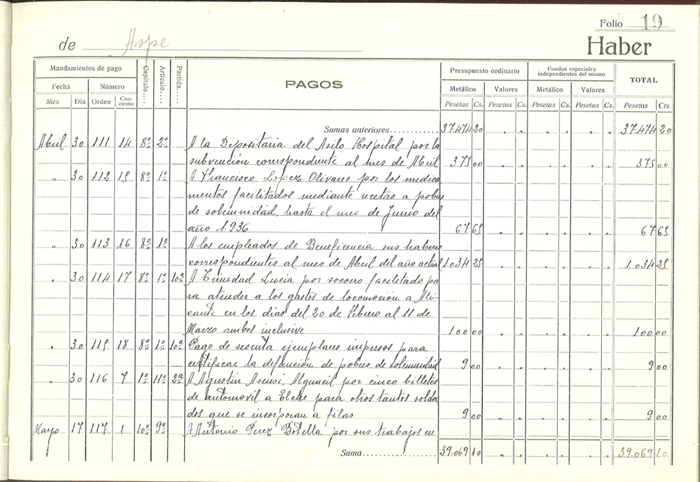 Folio 19
de Aspe Haber
Mandamientos de pago Capítulo.... Artículo.... Partida.... PAGOS Presupuesto ordinario Fondos especiales independientes del mismo TOTAL
Fecha Número Metálico Valores Metálico Valores
Mes Día Orden Concepto Pesetas Cs. Pesetas Cs. Pesetas Cs. Pesetas Cs. Pesetas Cts
Sumas anteriores 37.474 20 37.474 20
Abril 30 111 14 8º 2º A la Depositaria del Asilo Hospital por la
subvencion correspondiente al mes de Abril 375 00 375 00
" 30 112 15 8º 1º A Francisco Lopez Olivares por los medica
mentos facilitados mediante recetas a pobres
de solemnidad, hasta el mes de Junio del
año 1.936 67 65 67 65
" 30 113 16 8º 1º A los empleados de Beneficencia sus haberes
correspondientes al mes de Abril del año actual 1.034 25 1.034 25
" 30 114 17 8º 1º 10º A Trinidad Lucia por socorro facilitado pa
ra atender a los gastos de locomocion a Ali
cante en los dias del 20 de Febrero al 11 de
Marzo ambos inclusive 100 00 100 00
" 30 115 18 8º 1º 10º Pago de sesenta ejemplares impresos para
certificar la defuncion de pobres de solemnidad 9 00 9 00
" 30 116 7 1º 11º 2º A Agustin Asensi, Alguacil por cinco billetes
de automovil a Elche para otros tantos solda
dos que se incorporan a filas 9 00 9 00
Mayo 17 117 1 10º 9º A Antonio Perez Botella por sus trabajos en
Suma 39.069 10 39.069 10